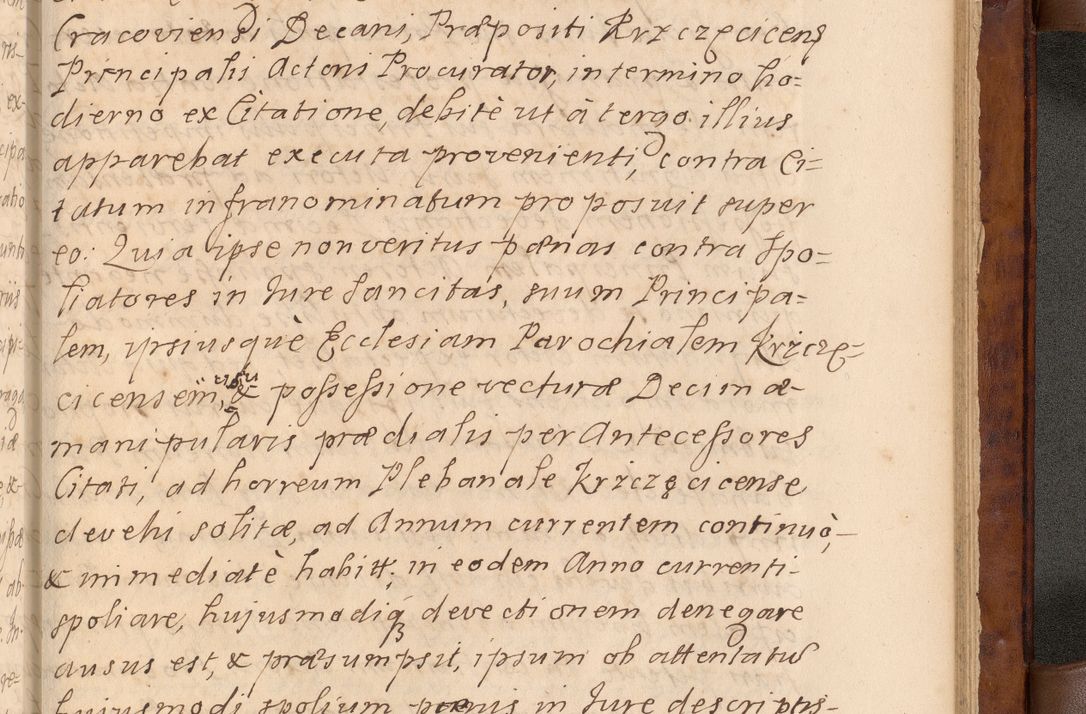 Cracoviensi Decani, Præpositi Krzczęcicens
Principalis Actoris Procurator, in termino ho=
dierno ex Citatione, debitè ut à tergo illius
apparebat executa provenienti, contra Ci=
tatum infranominatum proposuit super
eo: Quia ipse non veritus pœnas contra Spo=
liatores in Jure Sancitas, suum Principa=
lem, ipsiusquè Ecclesiam Parochialem Krżczę=
cicensem, usu & possessione vecturæ Decimæ
manipularis prædialis per Antecessores
Citati, ad horreum Plebanale Krżczęcicense
devehi solitæ, ad Annum currentem continuò,
& immediatè habitt; in eodem Anno currenti
spoliare, hujusmodiq3 devectionem denegare
ausus est, & præsumpsit, ipsum ob attentatū
hujusmodi spolium pœnis in Jure descriptis